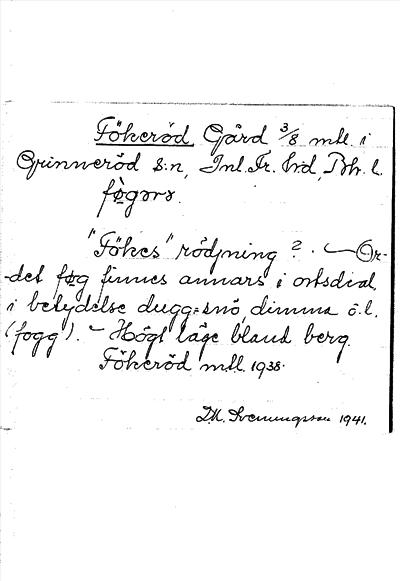 Fökeröd Gård 3/8 mtl. i
Grinneröd s:n, Inl. Fr. h:d, Bh. l.
føgərø.
"Fökes" rödjning? - Or-
det føg finnes annars i ortsdial.
i betydelse dugg=snö, dimma o. l.
(fogg). - Högt läge bland berg.
Fökeröd mtl. 1938.
D.M. Svenungsson 1941.